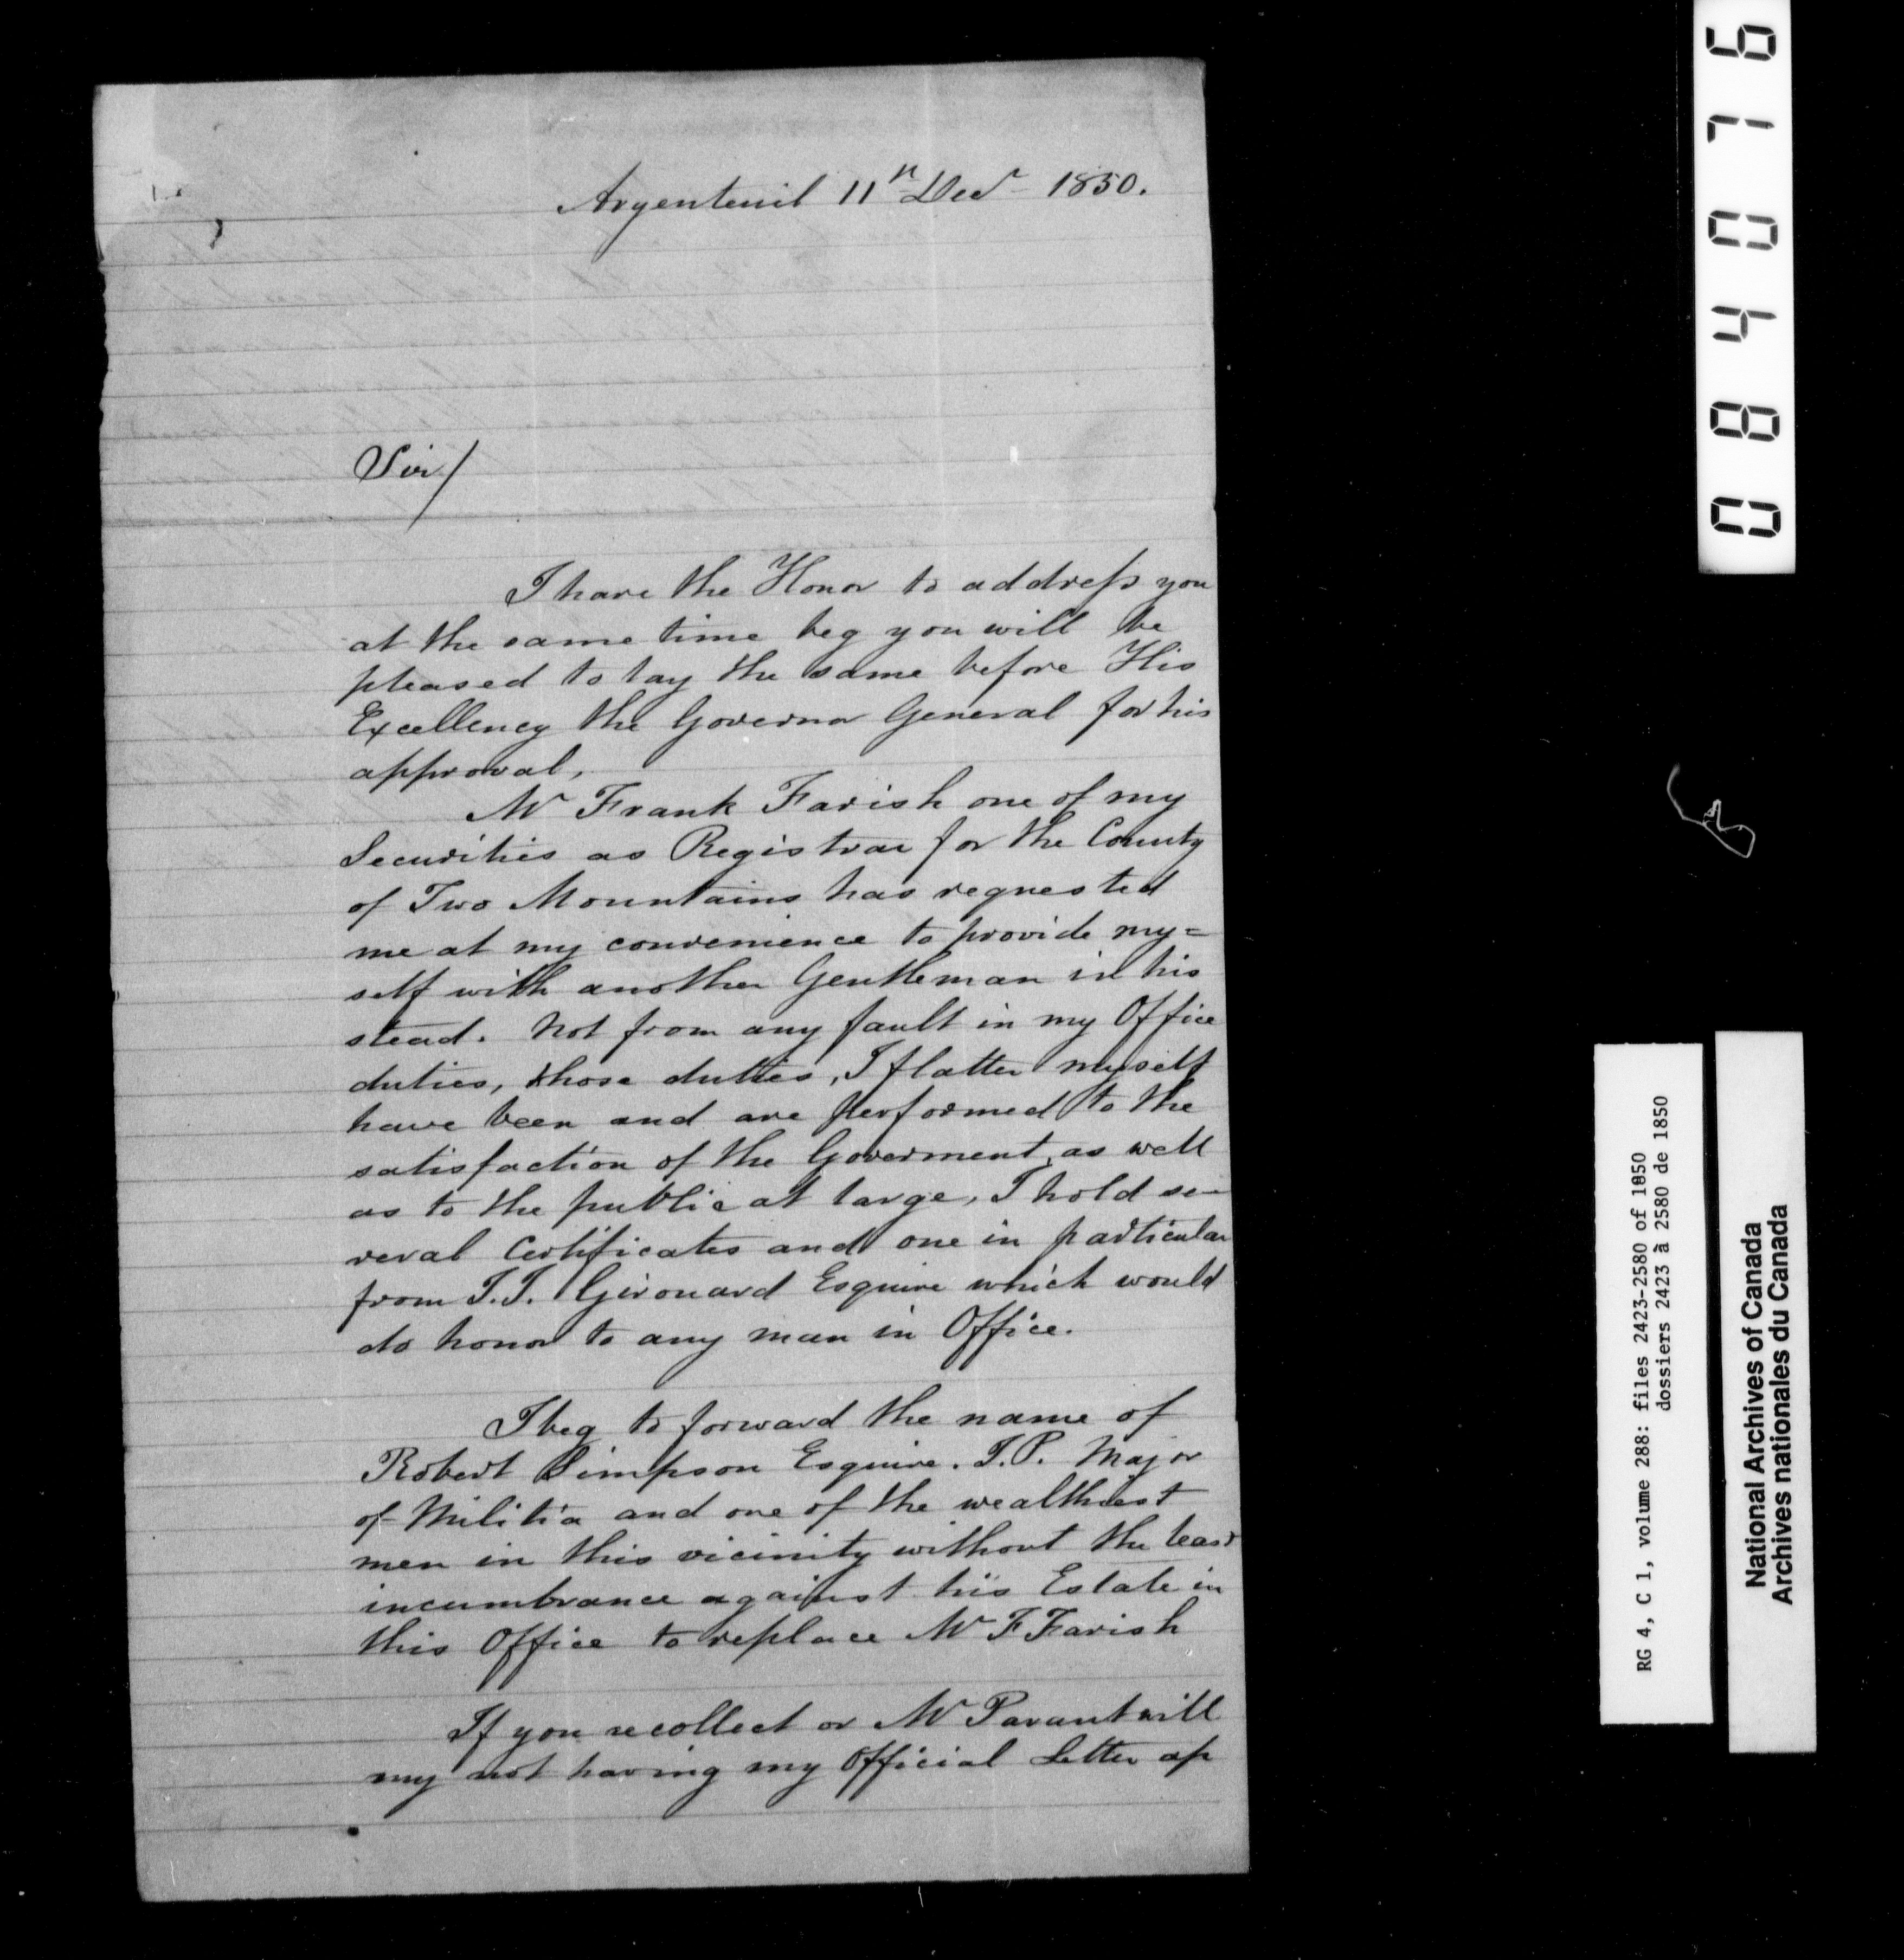 Argenteuil 11th Decr 1850.
Sir/
I have the Honor to address you
at the same time beg you will be
pleased to lay the same before His
Excellency the Governor General for his
approval,
Mr Frank Farish one of my
Securities as Registrar for the County
of Two Mountains has requested
me at my convenience to provide my=
self with another Gentleman in his
stead. Not from any fault in my Office
duties, those duties, I flatter myself
have been and are performed to the
satisfaction of the Goverment, as well
as to the public at large, I hold se-
veral Certificates and one in particular
from J.J. Girouard Esquire which would
do honor to any man in Office.
I beg to forward the name of
Robert Simpson Esquire. J.P. Major
of Militia and one of the wealthiest
men in this vicinity without the least
incumbrance against his Estate in
this Office to replace Mr F Farish
If you recollect or Mr Parant will
my not having my Official Letter ap
084076
RG 4, C 1, volume 288: files 2423-2580 of 1850
dossiers 2423 à 2580 de 1850
National Archives of Canada
Archives nationales du Canada